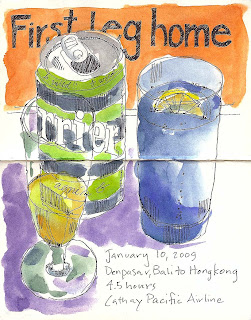 First Leg home
rrier
January 10, 2009
Denpasar, Bali to Hongkong
4.5 hours
Cathay Pacific Airline